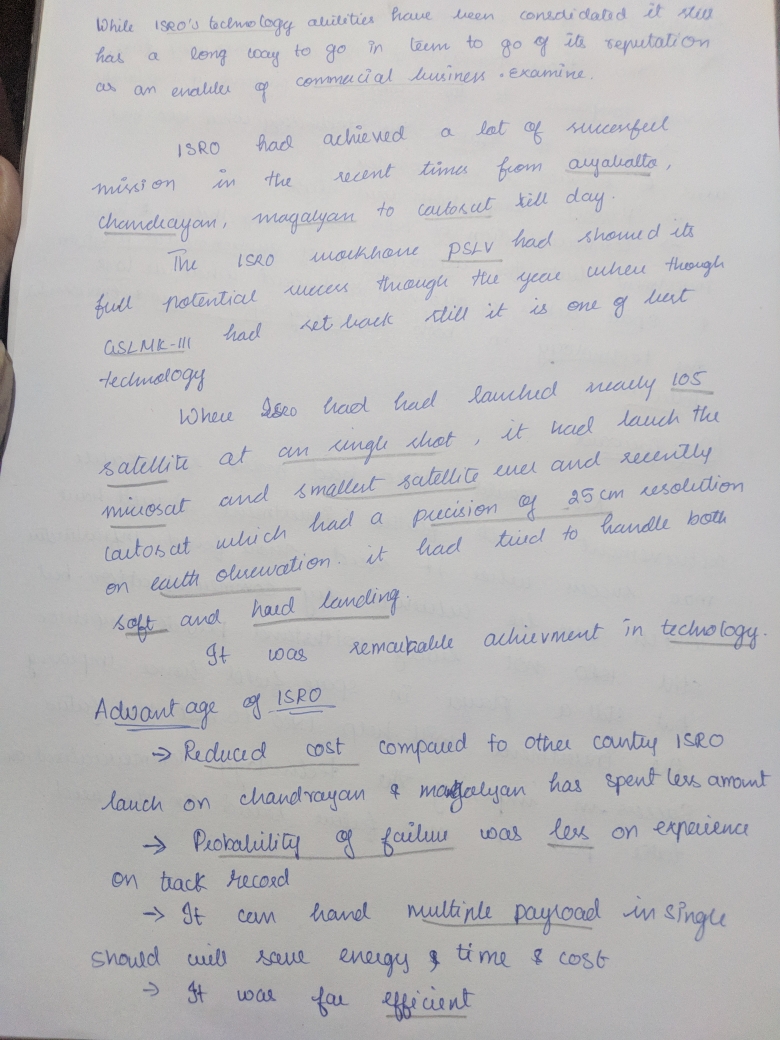 While ISRO's technology abilities have been consolidated it still
has a long way to go in term to go of its reputation
as an enabler of commercial business. Examine.
ISRO had achieved a lot of successful
mission in the recent times from aryabatta,
chandrayan, magalyan to cartosat till day.
The ISRO workhorse PSLV had showed its
full potential success through the year when though
GSLMK-III had set back still it is one of best
technology
Where ISRO had had lauched nearly 105
satellite at an single shot, it had lauch the
microsat and smallest satellite ever and recently
cartosat which had a precision of 25cm resolution
on earth observation. it had tried to handle both
soft and hard landing.
It was remarkable achievment in technology.
Advantage of ISRO
→ Reduced cost compared to other country ISRO
lauch on chandrayan & mangalyan has spent less amount
→ Probability of failure was less on experience
on track record
→ It can hand multiple payload in single
should will save energy & time & cost
→ It was far efficient